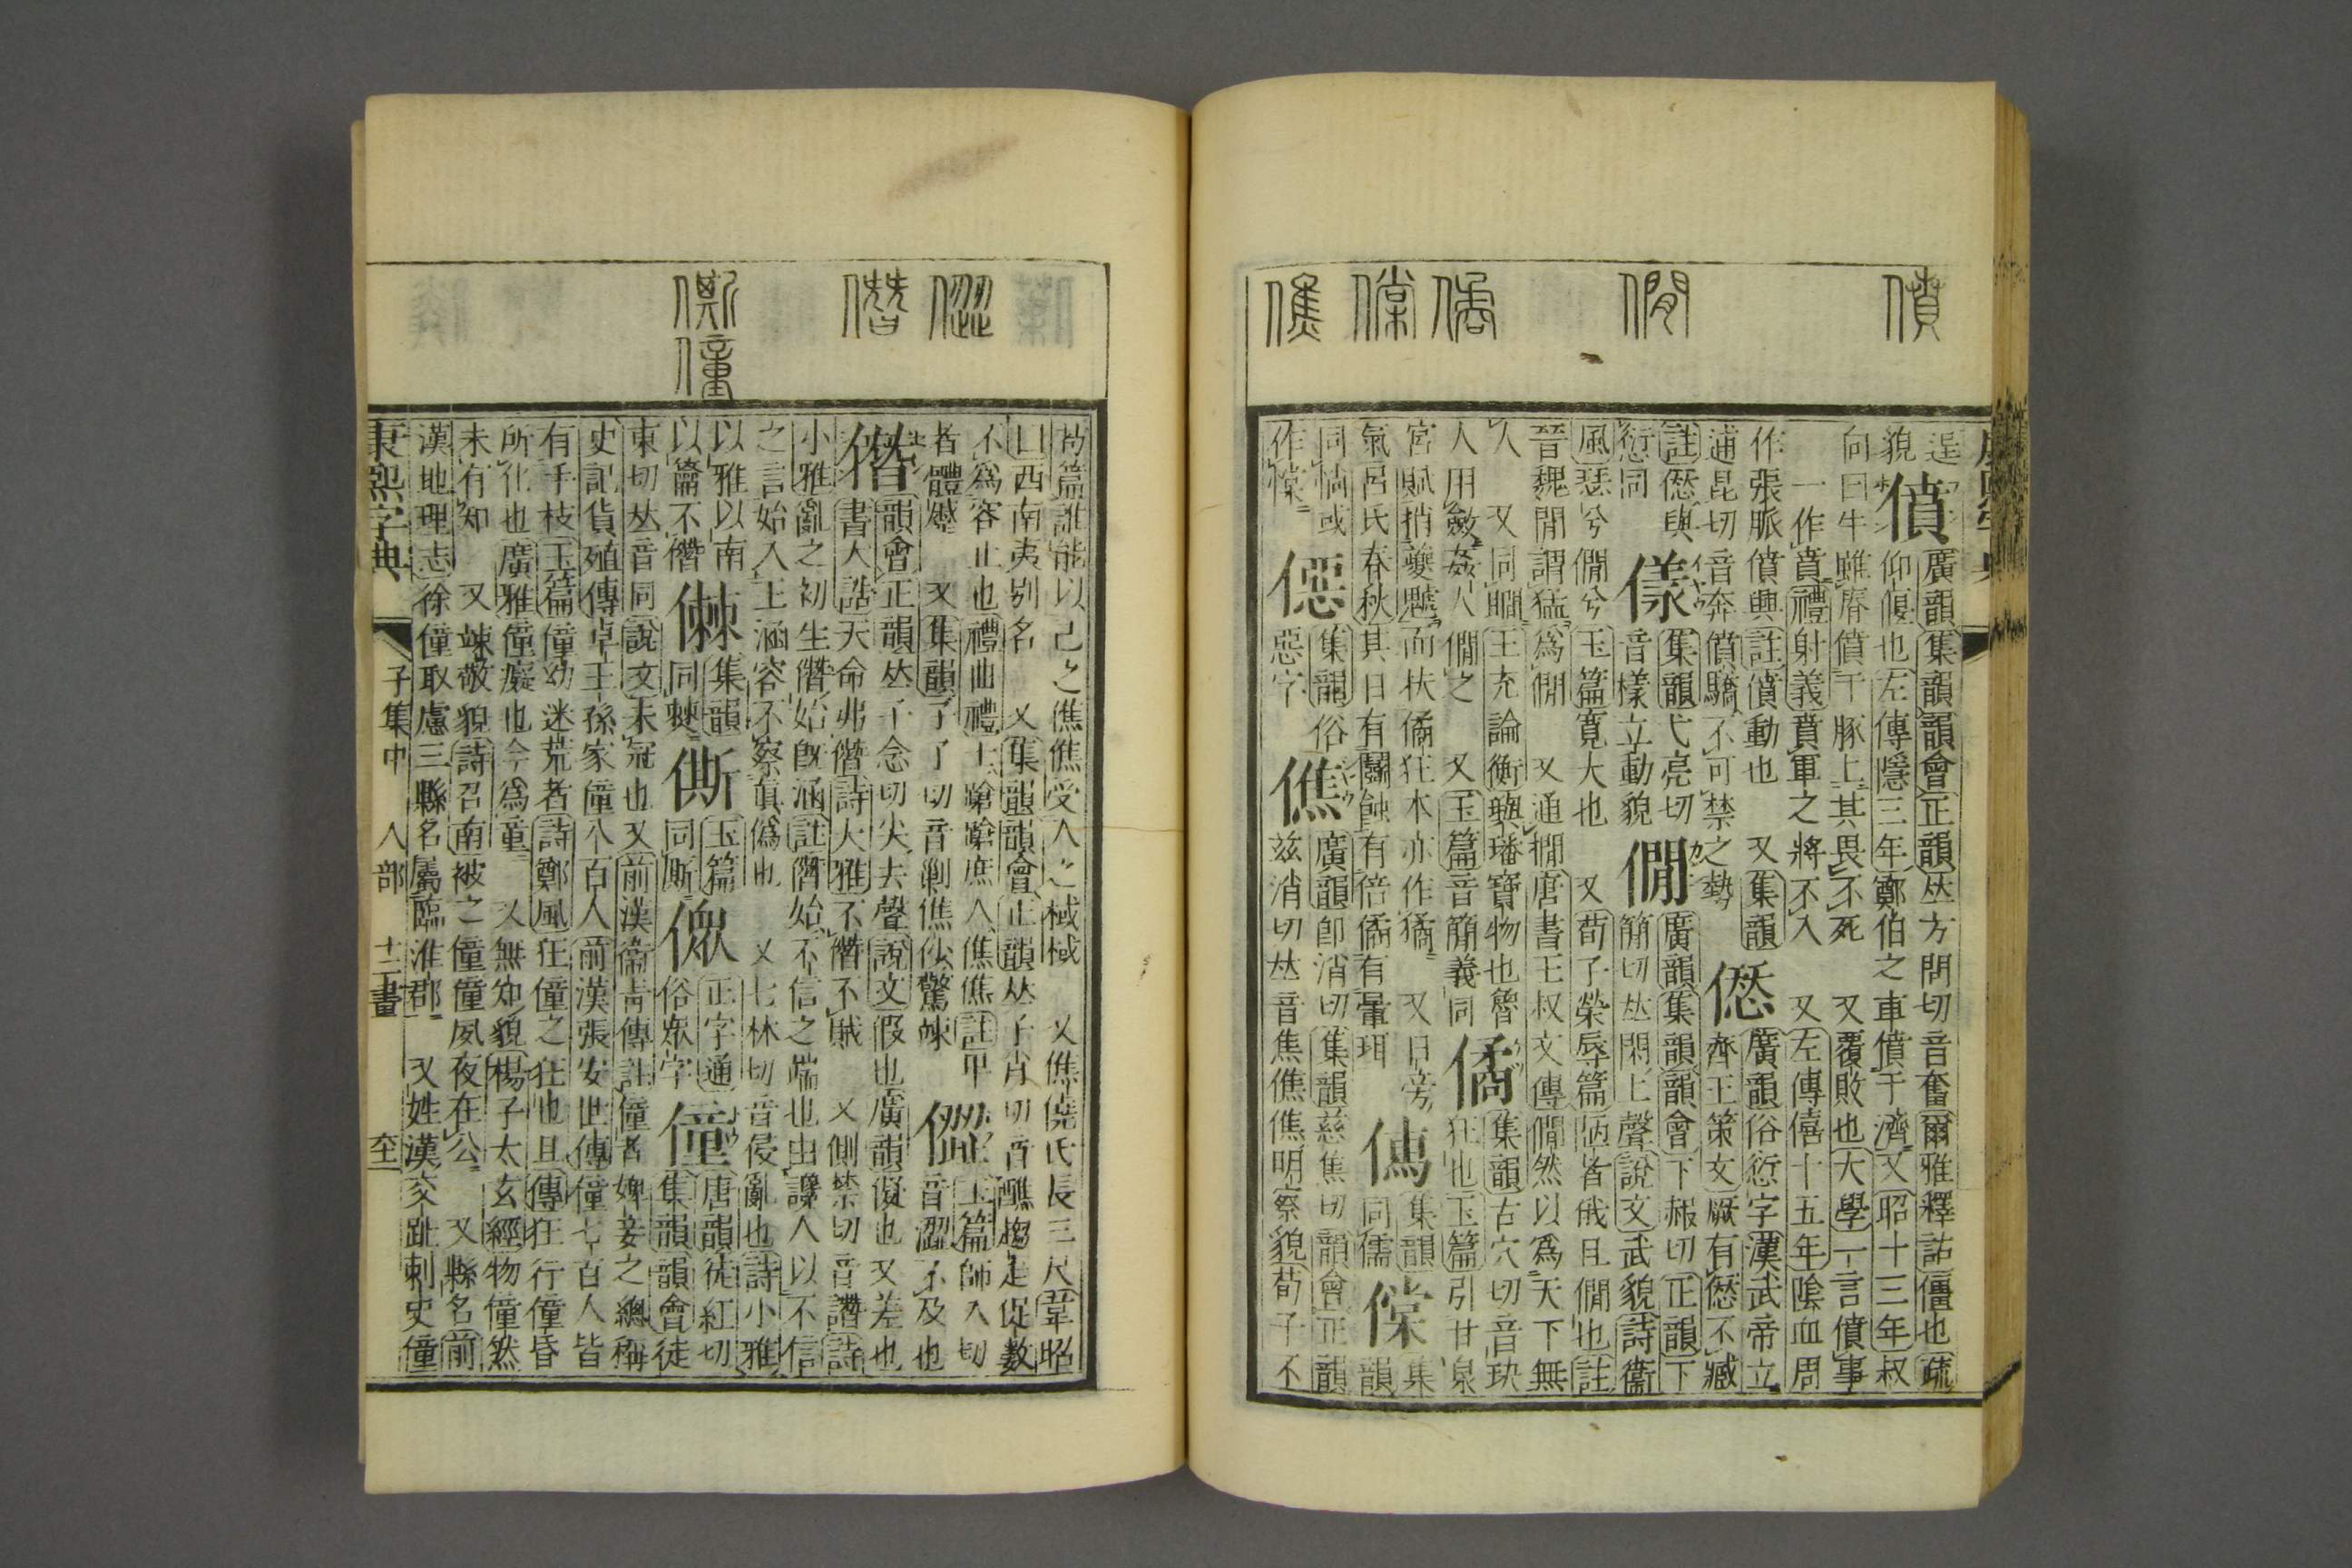 逞
貌
僨
廣韻集韻韻會正韻𠀤方問切音奮爾雅釋詁僵也疏
仰偃也左傳隱三年鄭伯之車僨于濟又昭十三年叔
向曰牛雖瘠僨于豚上其畏不死 又覆敗也大學一言僨事
一作賁禮射義賁軍之將不入 又左傳僖十五年隂血周
作張脈僨興註僨動也 又集韻
逋昆切音奔僨驕不可禁之勢
僁
廣韻俗愆字漢武帝立
齊王策文厥有僁不臧
註僁與
愆同
集韻弋亮切
音樣立動貌
僩
廣韻集韻韻會下赧切正韻下
簡切𠀤閑上聲說文武貌詩衞
風瑟兮僩兮玉篇寬大也 又荀子榮辱篇陋者俄且僩也註
晉魏閒謂猛爲僩 又通撊唐書王叔文傳僩然以爲天下無
人 又同瞷王充論衡璵璠寶物也魯
人用斂姦人僩之 又玉篇音簡義同
僪
集韻古穴切音玦
狂也玉篇引甘泉
宮賦捎夔魖而抶僪狂本亦作獝 又日旁
氣呂氏春秋其日有鬭蝕有倍僪有暈珥
集韻
同儒
集
韻
同惝或
作
僫
集韻俗
惡字
僬
廣韻卽消切集韻慈焦切韻會正韻
兹消切𠀤音焦僬僬明察貌荀子不
苟篇誰能以己之僬僬受人之棫棫 又僬僥氏長三尺韋昭
曰西南夷別名 又集韻韻會正韻𠀤子肖切音醮趨走促數
不爲容止也禮曲禮士蹌蹌庶人僬僬註甲
者體蹙 又集韻子了切音剿僬㑊驚竦
玉篇師入切
音澀不及也
僭
韻會正韻𠀤子念切尖去聲說文假也廣韻儗也又差也
書大誥天命弗僭詩大雅不僭不賊 又側禁切音譖詩
小雅亂之初生僭始旣涵註僭始不信之端也由讒人以不信
之言始入上涵容不察眞僞也 又七林切音侵亂也詩小雅
以雅以南
以籥不僭
集韻
同棘
僟
玉篇
同厮
正字通
俗眾字
僮
唐韻徒紅切
集韻韻會徒
東切𠀤音同說文未冠也又前漢衞靑傳註僮者婢妾之總稱
史記貨殖傳卓王孫家僮八百人前漢張安世傳僮七百人皆
有手技玉篇僮幼迷荒者詩鄭風狂僮之狂也且傳狂行僮昏
所化也廣雅僮癡也今爲童 又無知貌楊子太玄經物僮然
未有知 又竦敬貌詩召南被之僮僮夙夜在公 又縣名前
漢地理志徐僮取慮三縣名屬臨淮郡 又姓漢交趾刺史僮
康熙字典 子集中 人部 十二畫